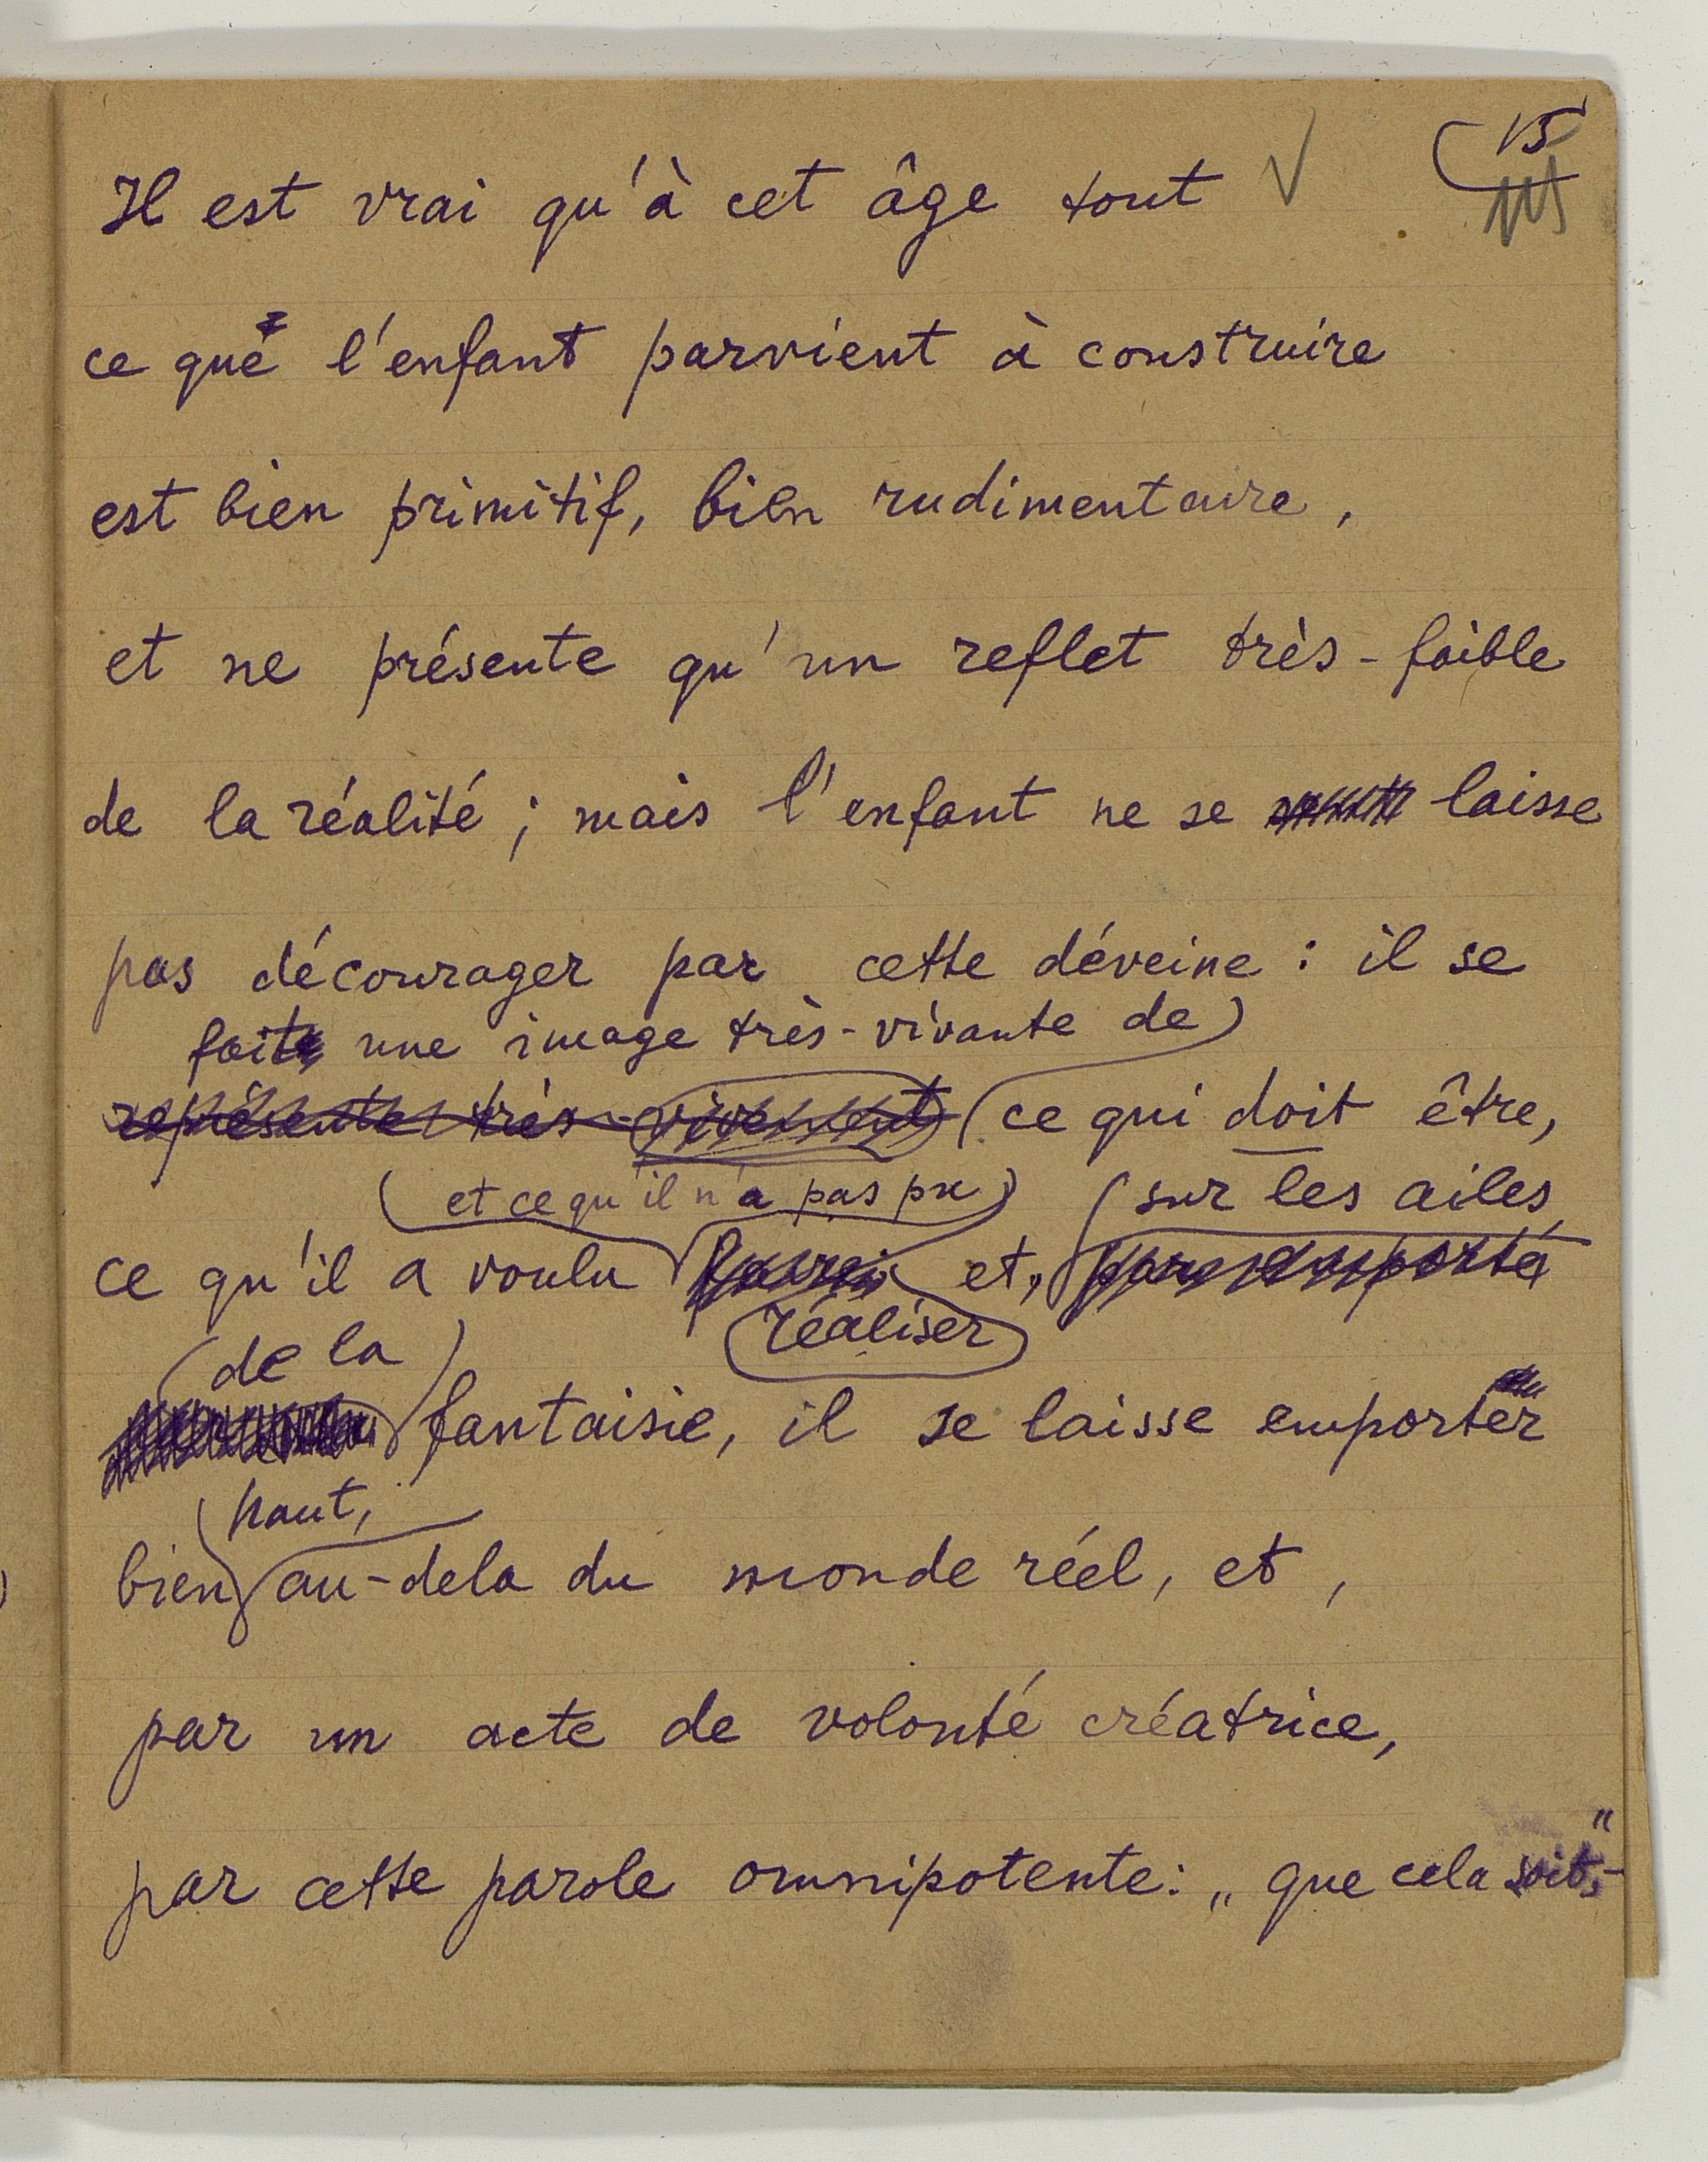 15
Il est vrai qu'à cet âge tout
ce que l'enfant parvient à construire
est bien primitif, bien rudimentaire,
et ne présente qu'un reflet très-faible
de la réalité ; mais l'enfant ne se laisse
pas décourager par cette déveine : il se
fait une image très-vivante de
représente très-vivement ce qui doit être,
et ce qu'il n'a pas pu sur les ailes
ce qu'il a voulu et,
réaliser
de la
fantaisie, il se laisse emporter
haut,
bien au-dela du monde réel, et,
par un acte de volonté créatrice,
par cette parole omnipotente : „que cela soit",-